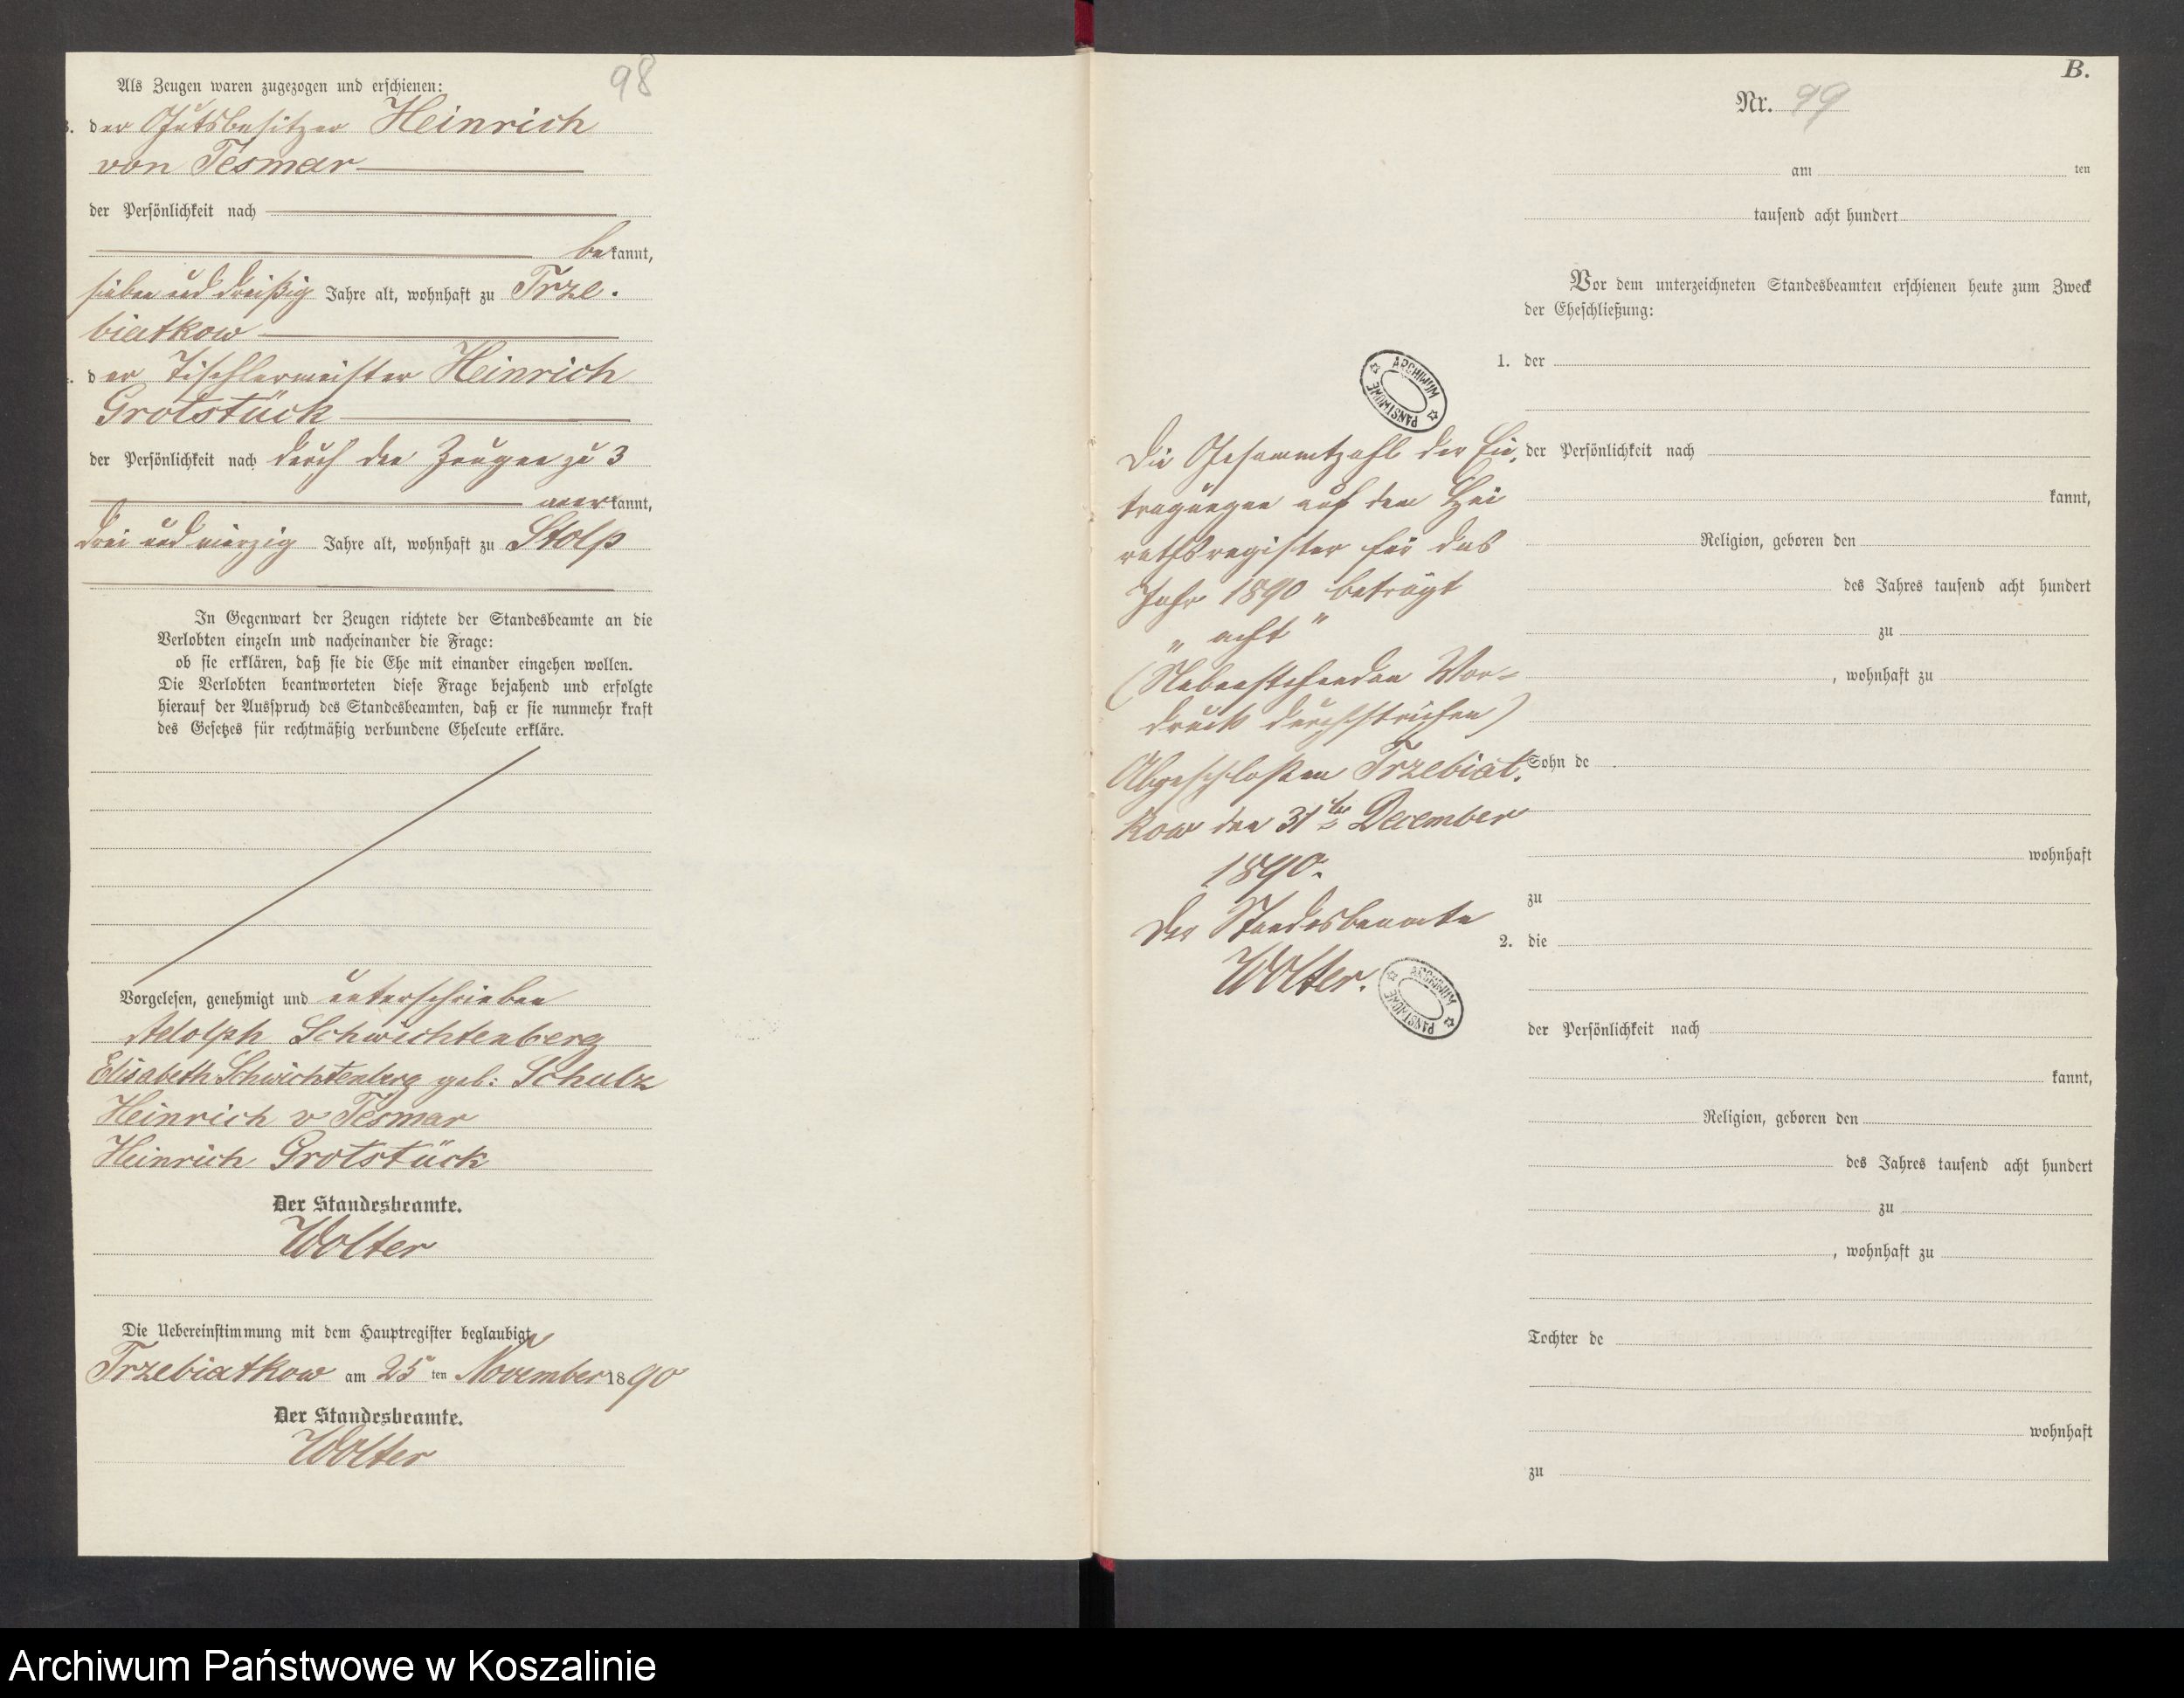 98
Als Zeugen waren zugezogen und erschienen:
3. der Gutsbesitzer Heinrich
von Tesmar
der Persönlichkeit nach
bekannt,
sieben und dreißig Jahre alt, wohnhaft zu Trze-
biatkow
4. der Tischlermeister Heinrich
Grotstück
der Persönlichkeit nach durch den Zeugen zu 3
anerkannt,
drei und vierzig Jahre alt, wohnhaft zu Stolp
In Gegenwart der Zeugen richtete der Standesbeamte an die
Verlobten einzeln und nacheinander die Frage:
ob sie erklären, daß sie die Ehe mit einander eingehen wollen.
Die Verlobten beantworteten diese Frage bejahend und erfolgte
hierauf der Ausspruch des Standesbeamten, daß er sie nunmehr kraft
des Gesetzes für rechtmäßig verbundene Eheleute erkläre.
Vorgelesen, genehmigt und unterschrieben
Adolph Schwichtenberg
Elisabeth Schwichtenberg geb: Schulz
Heinrich v Tesmar
Heinrich Grotstück
Der Standesbeamte.
Wolter
Die Uebereinstimmung mit dem Hauptregister beglaubigt
Trzebiatkow am 25 ten November 1890
Der Standesbeamte.
Wolter
Die Gesammtzahl der Ein-
tragungen auf dem Hei
rathsregister für das
Jahr 1890 beträgt
„ acht "
(Nebenstehenden Vor-
druck durchstrichen)
Abgeschloßen Trzebiat-
kow den 31ten December
1890.
Der Standesbeamte
Wolter.
ARCHIWUM PAŃSTWOWE
ARCHIWUM PAŃSTWOWE
B.
Nr. 99
am ten
tausend acht hundert
Vor dem unterzeichneten Standesbeamten erschienen heute zum Zweck
der Eheschließung:
1. der
der Persönlichkeit nach
kannt,
Religion, geboren den
des Jahres tausend acht hundert
zu
, wohnhaft zu
Sohn de
wohnhaft
zu
2. die
der Persönlichkeit nach
kannt,
Religion, geboren den
des Jahres tausend acht hundert
zu
, wohnhaft zu
Tochter de
wohnhaft
zu
Archiwum Państwowe w Koszalinie